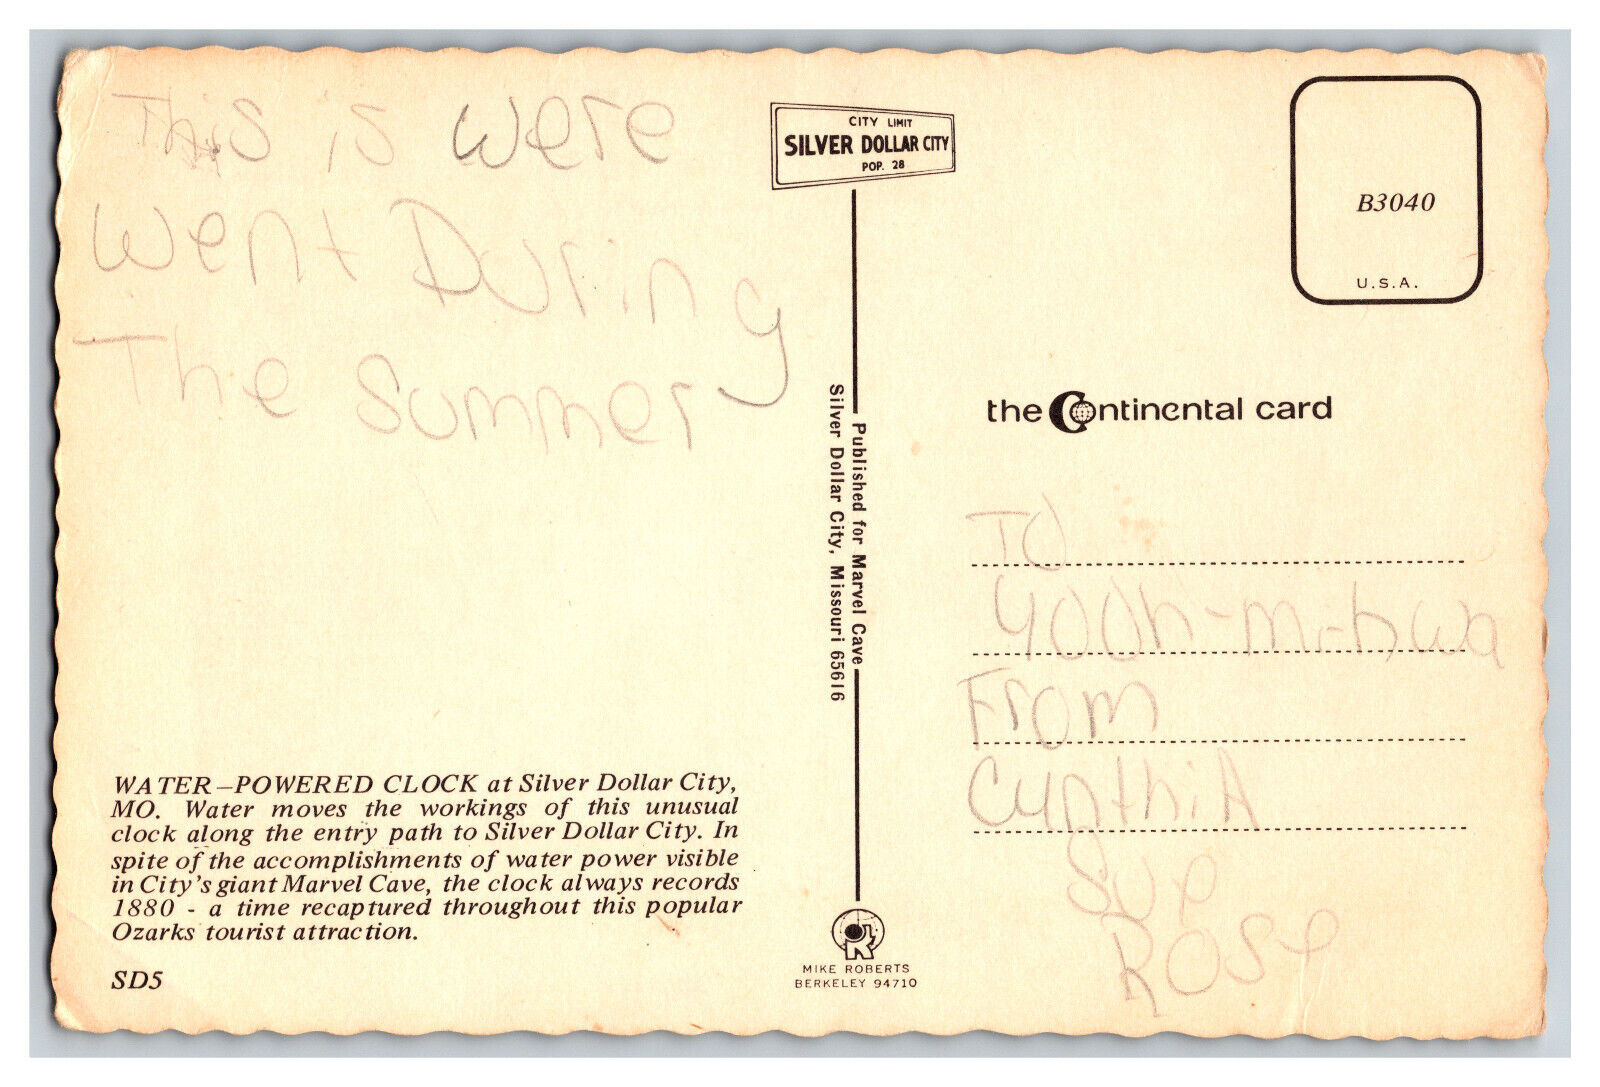 This is were
went During
The summer
CITY LIMIT
SILVER DOLLAR CITY
POP. 28
B3040
U.S.A.
the Continental card
Published for Marvel Cave
Silver Dollar City, Missouri 65616
TO
From
CynthiA
Sue
Rose
WATER–POWERED CLOCK at Silver Dollar City,
MO. Water moves the workings of this unusual
clock along the entry path to Silver Dollar City. In
spite of the accomplishments of water power visible
in City's giant Marvel Cave, the clock always records
1880 - a time recaptured throughout this popular
Ozarks tourist attraction.
SD5
MIKE ROBERTS
BERKELEY 94710